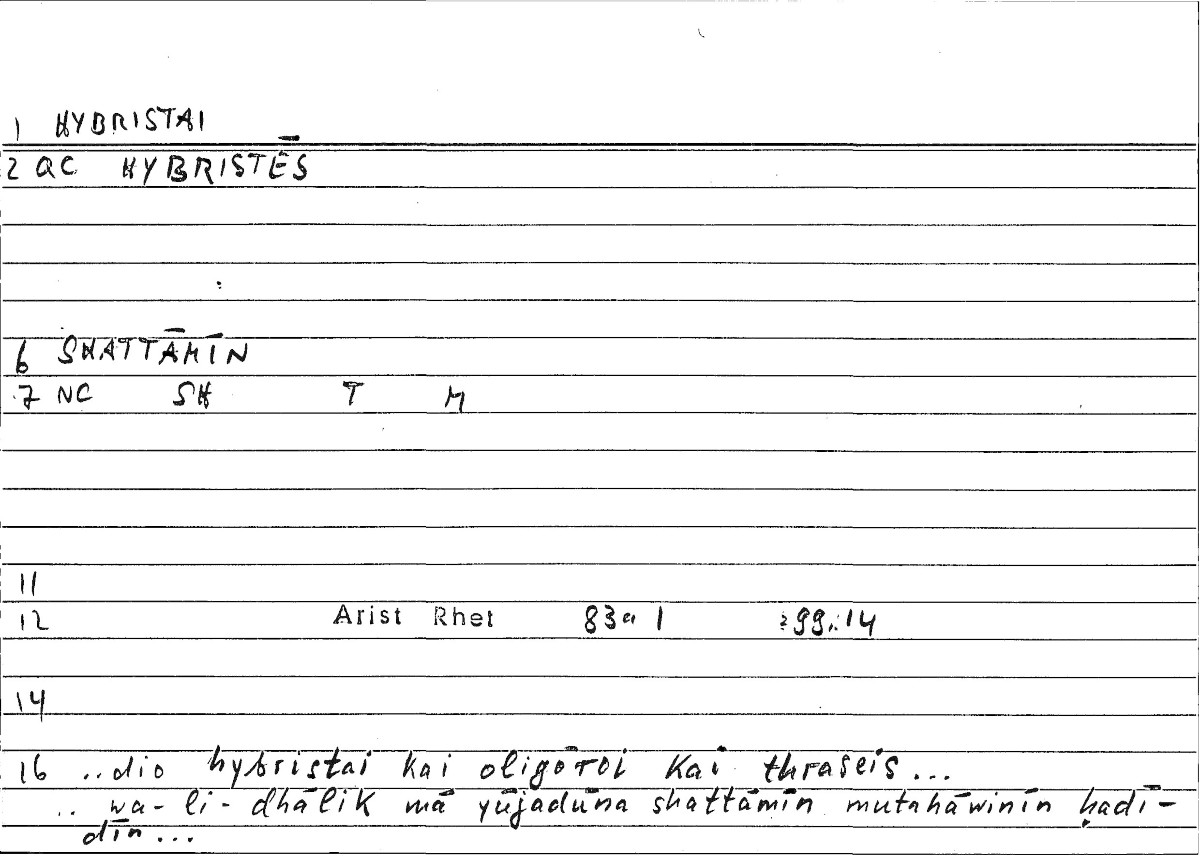 1 HYBRISTAI
2 QC HYBRISTĒS
6 SHATTĀMĪN
7 NC SH T M
11
12 Arist Rhet 83a 1 :99,:14
14
16 ..dio hybristai kai oligōroi kai thraseis...
.. wa-li-dhālik mā yūjadūna shattāmīn mutahāwinīn ḥadī-
dīn...